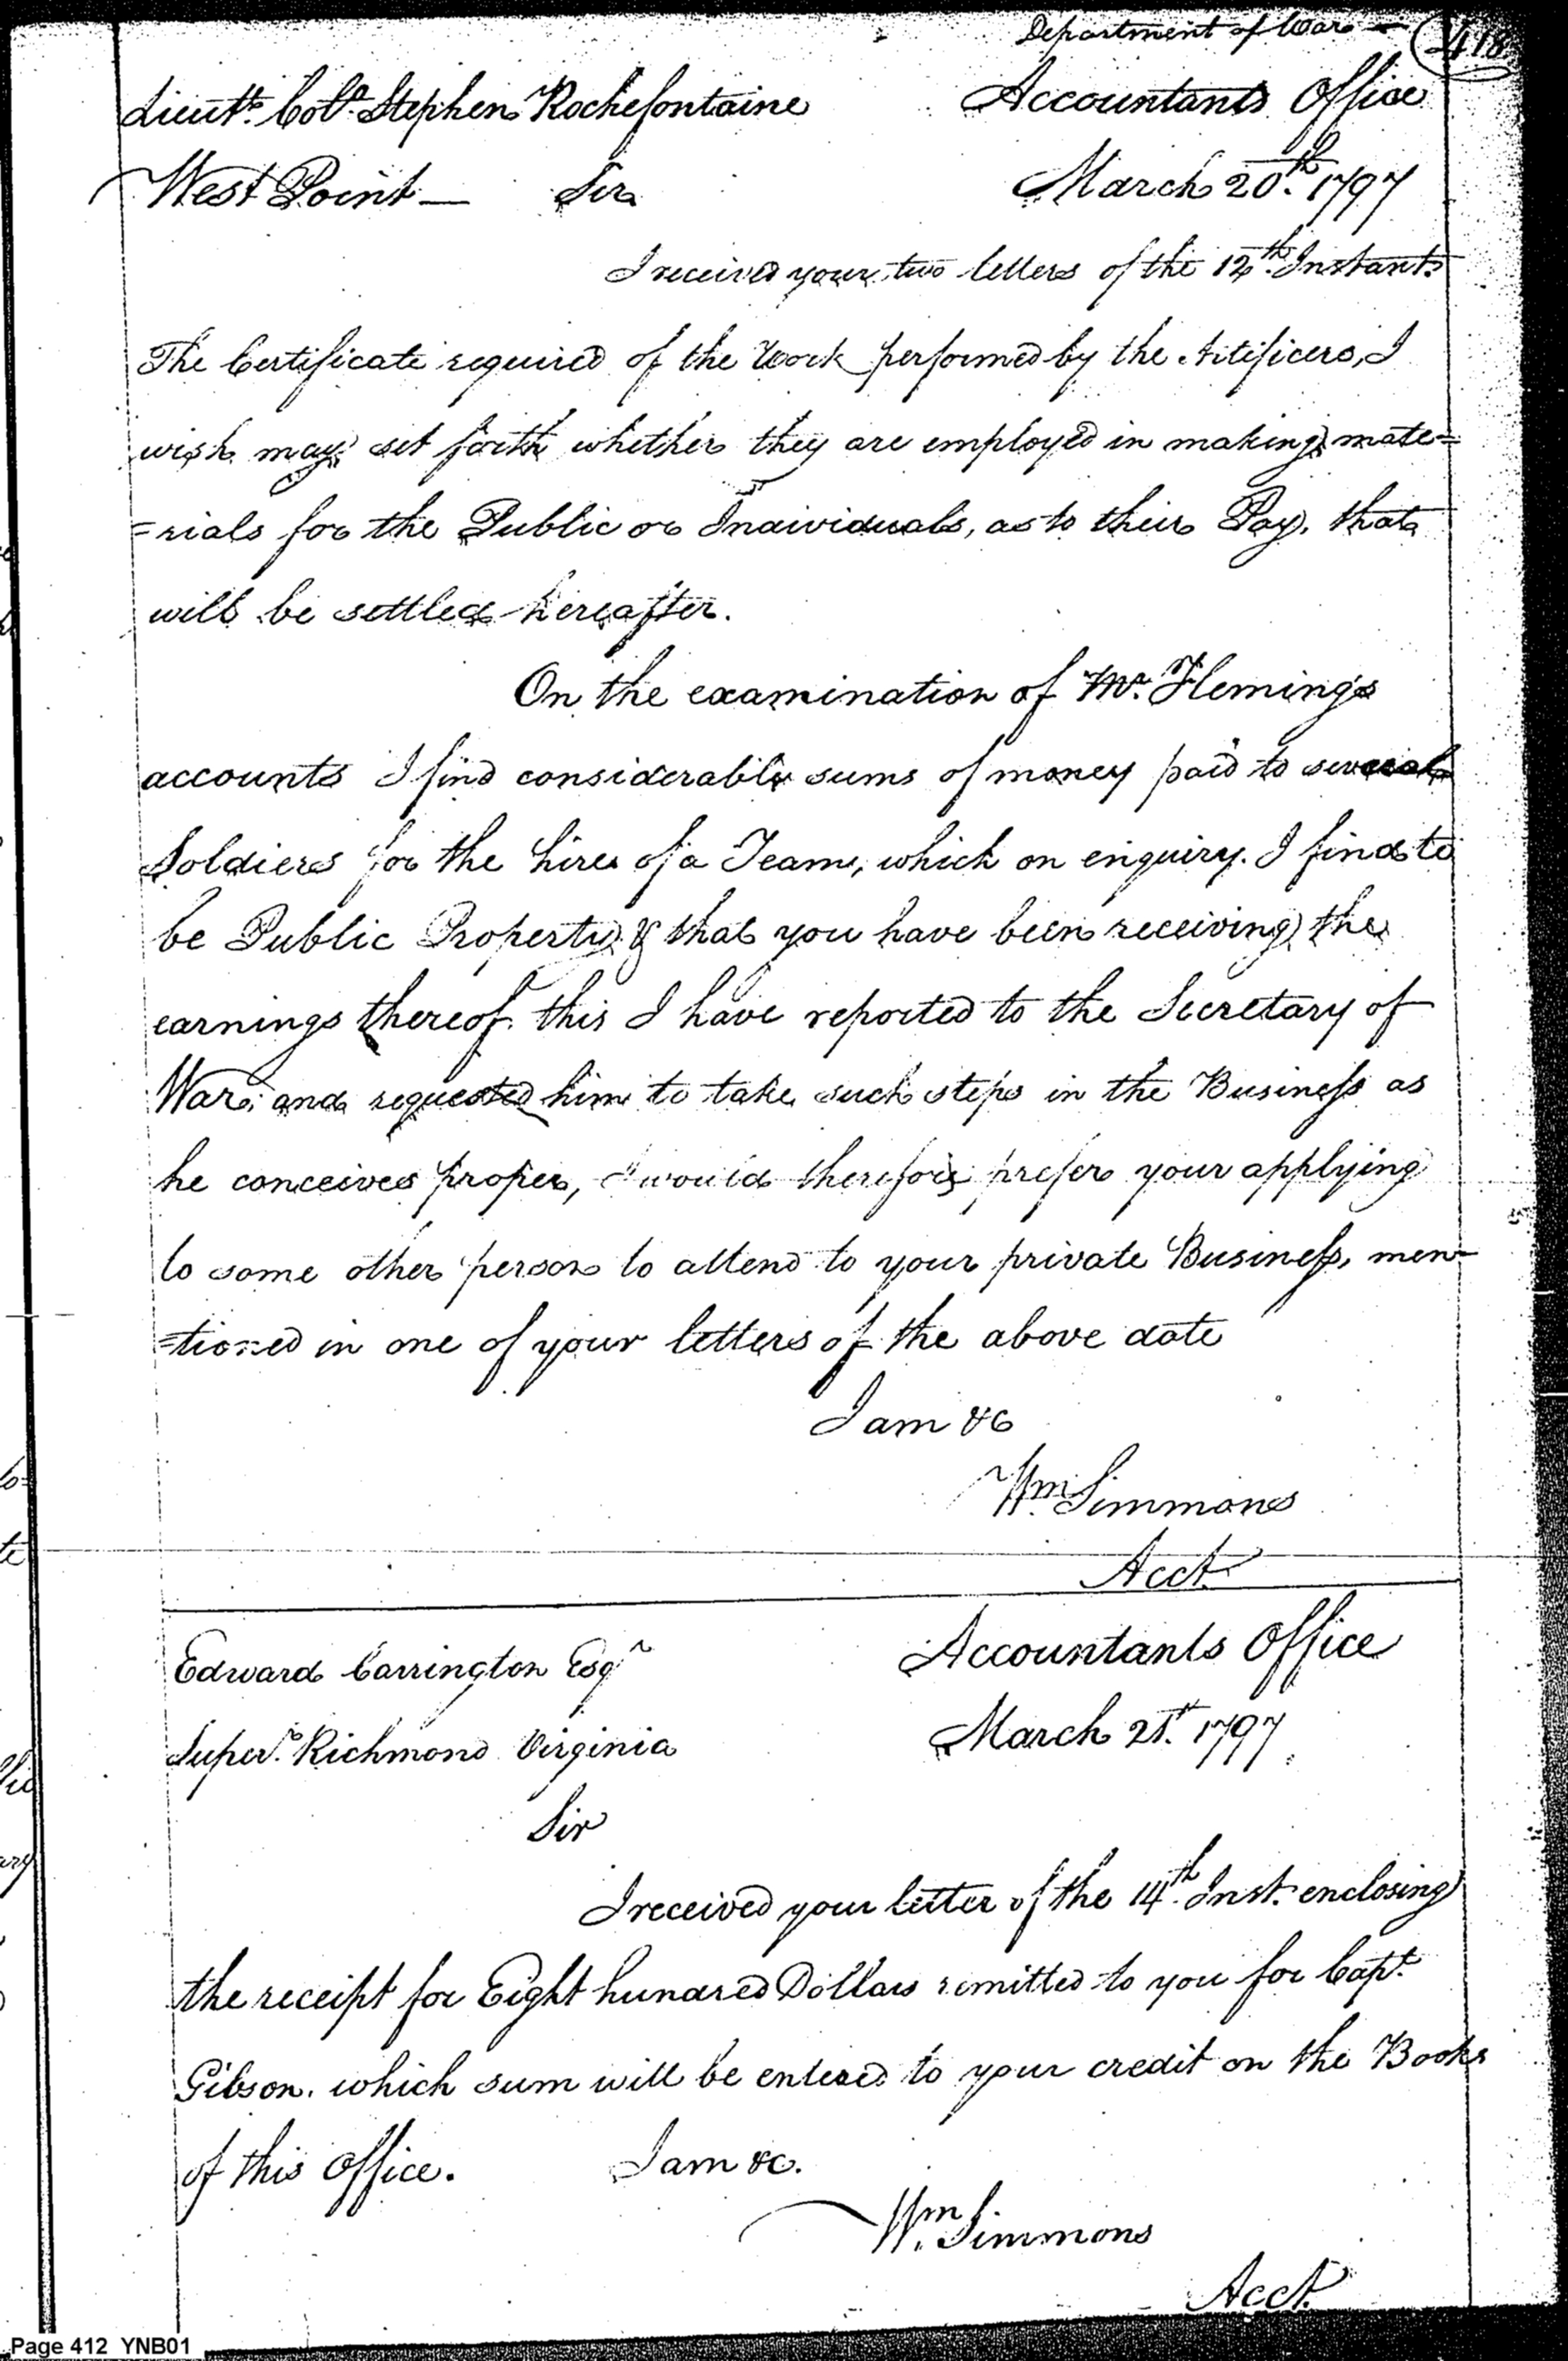 Department of War — 418
Lieutt. Colo. Stephen Rochefontaine Accountants Office
West Point — Sir March 20th. 1797
I received your two letters of the 12th. Instant.
The Certificate required of the Work performed by the Artificers, I
wish may set forth whether they are employed in making mate=
=rials for the Public or Individuals, as to their Pay, that
will be settled hereafter.
On the examination of Mr. Flemings
accounts I find considerable sums of money paid to several
Soldiers for the hire of a Team, which on enquiry. I find to
be Public Property & that you have been receiving the
earnings thereof. this I have reported to the Secretary of
War, and requested him to take such steps in the Business as
he conceives proper, I would therefore prefer your applying
to some other person to attend to your private Business, men=
=tioned in one of your letters of the above date
I am &c
Wm. Simmons
Acct.
Edward Carrington Esqr Accountants Office
Superr. Richmond Virginia March 21st. 1797
Sir
I received your letter of the 14th. Inst. enclosing
the receipt for Eight hundred Dollars remitted to you for Capt.
Gibson. which sum will be entered to your credit on the Books
of this Office. I am &c.
Wm. Simmons
Acct.
Page 412 YNB01